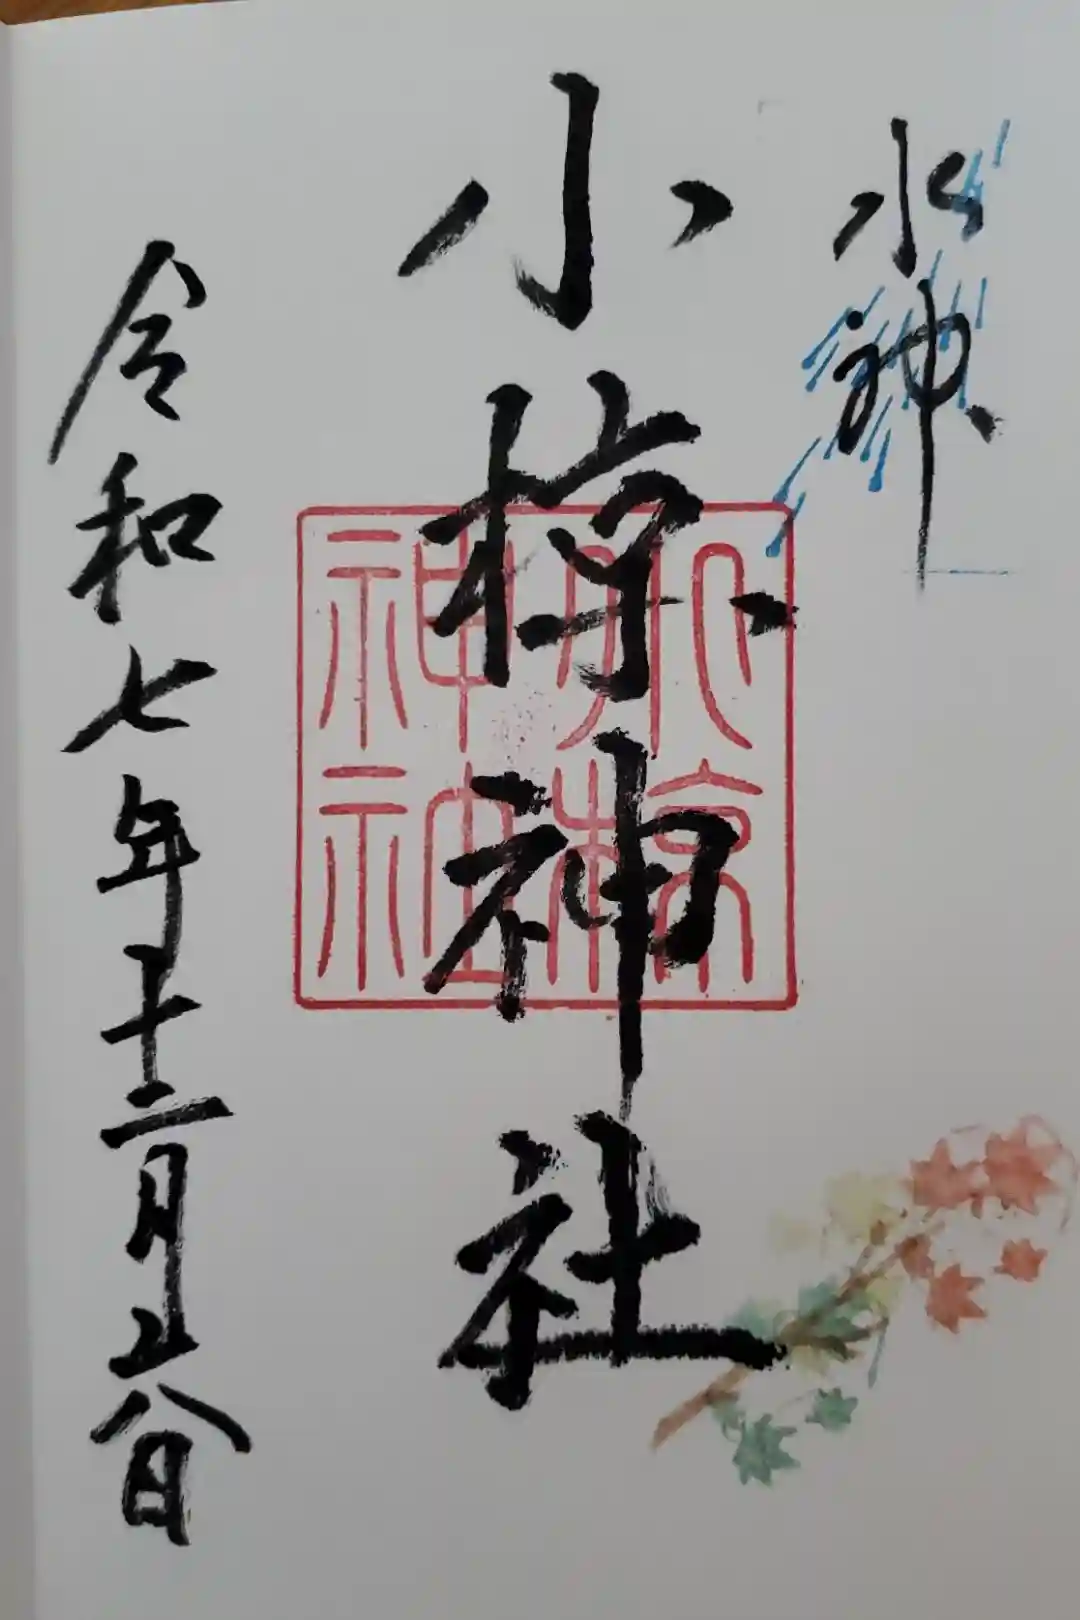 水神
小椋神社
小椋
神社
令和七年十二月八日